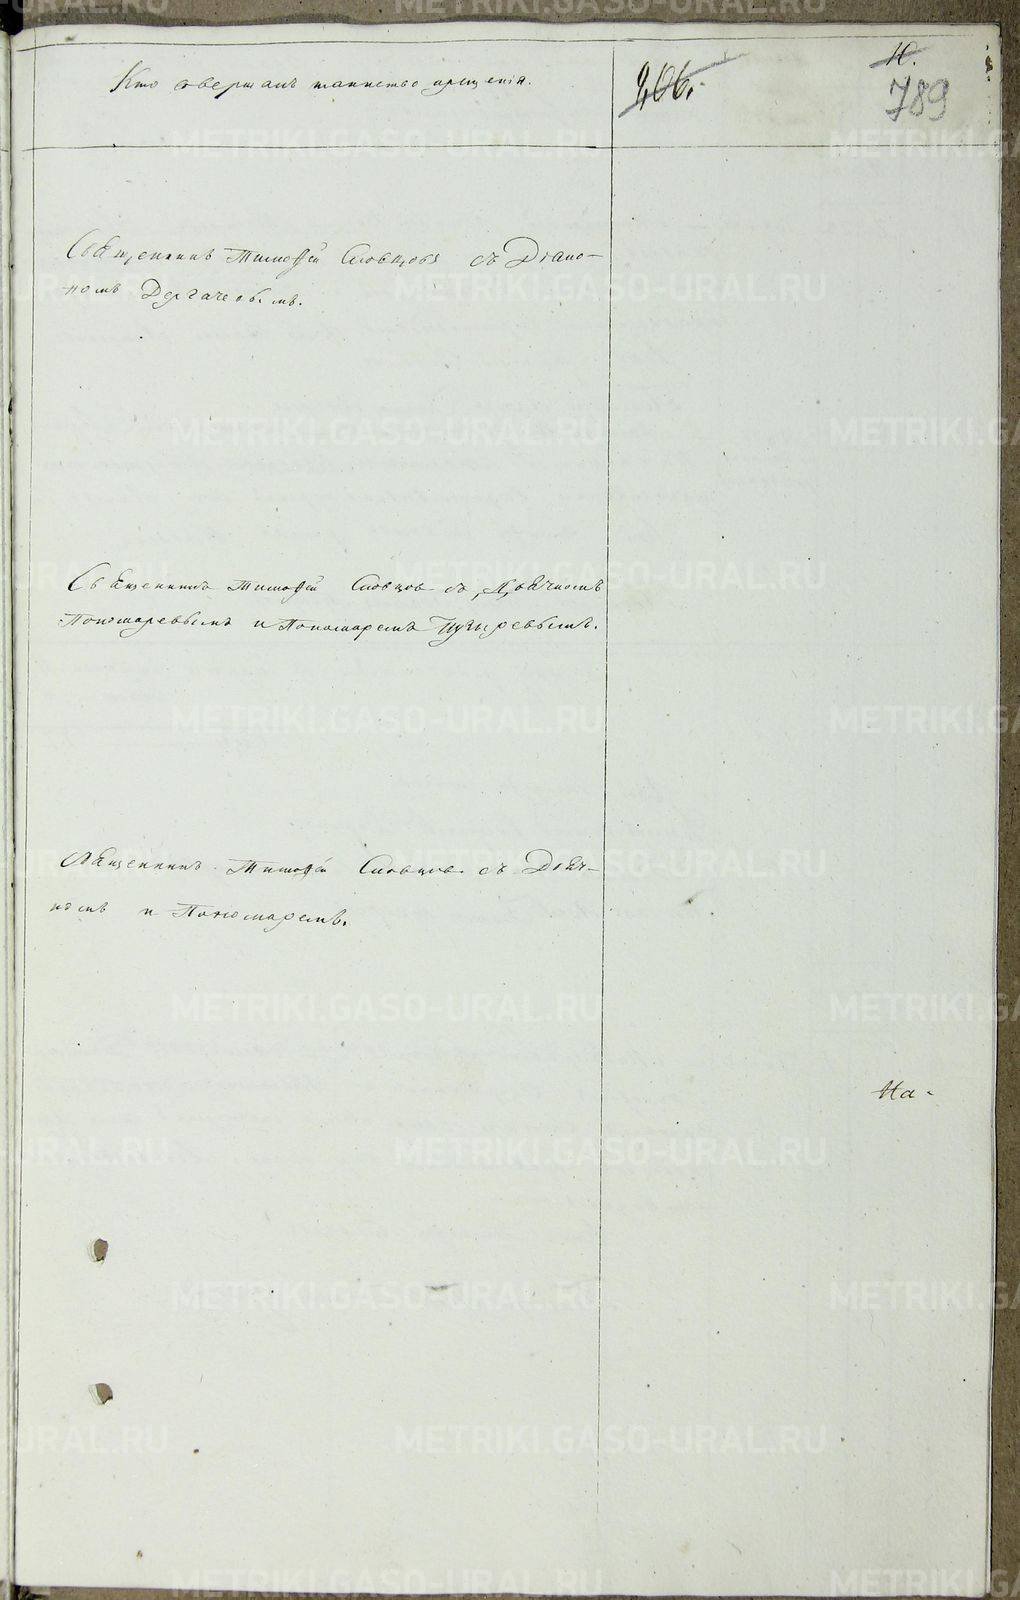 Кто совершалъ таинство крещенія.
206.
10.
789
Священникъ Тимофей Словцовъ съ Діако-
номъ Дергачевымъ.
Священникъ Тимофей Словцов съ Дьячкомъ
Пономаревымъ и Пономаремъ Пузыревымъ.
Священникъ Тимофей Словцов съ Дьяч-
комъ и Пономаремъ.
На-
METRIKI.GASO-URAL.RU